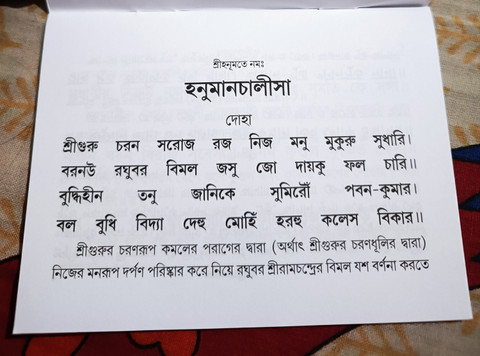 শ্রীহনূমতে নমঃ
হনুমানচালীসা
দোহা
শ্রীগুরু চরন সরোজ রজ নিজ মনু মুকুরু সুধারি।
বরনউ রঘুবর বিমল জসু জো দায়কু ফল চারি॥
বুদ্ধিহীন তনু জানিকে সুমিরৌঁ পবন-কুমার।
বল বুধি বিদ্যা দেহু মোহিঁ হরহু কলেস বিকার॥
শ্রীগুরুর চরণরূপ কমলের পরাগের দ্বারা (অর্থাৎ শ্রীগুরুর চরণধূলির দ্বারা)
নিজের মনরূপ দর্পণ পরিষ্কার করে নিয়ে রঘুবর শ্রীরামচন্দ্রের বিমল যশ বর্ণনা করতে